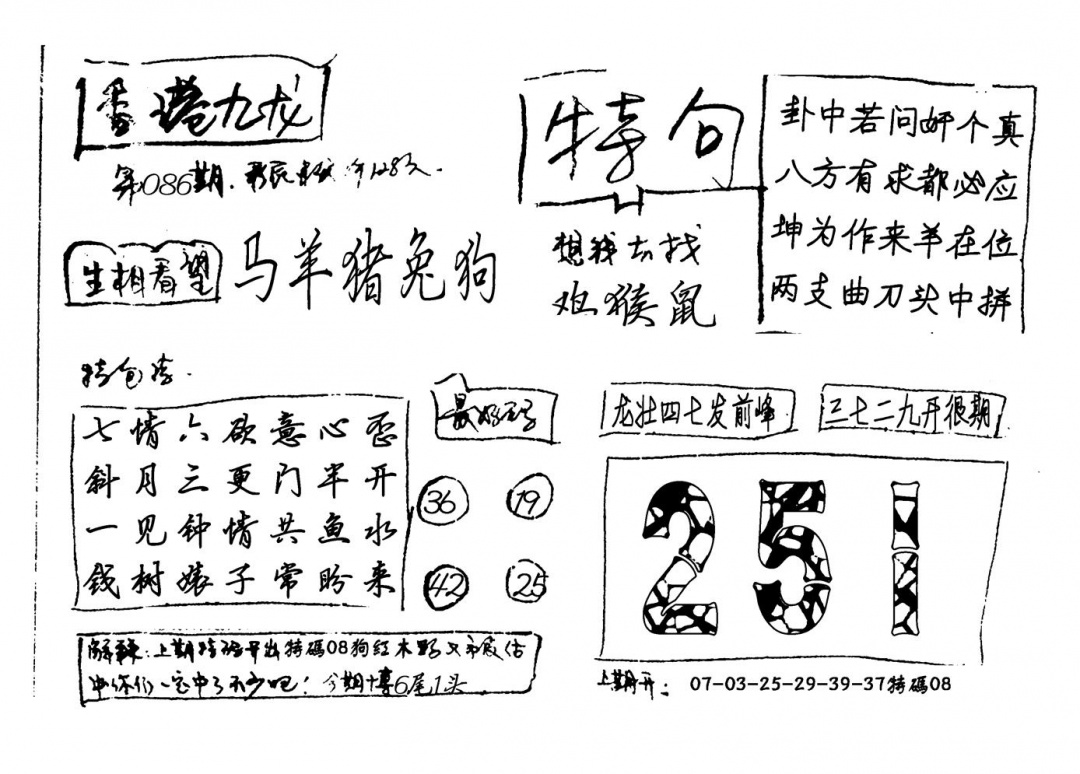 香港九龙
第086期
生相看望
马羊猪兔狗
特句
想我去找
鸡猴鼠
卦中若问好个真
八方有求都必应
坤为作来羊在位
两支曲刀头中拼
特包法
七情六欲意心歪
斜月三更门半开
一见钟情共鱼水
钱树婊子常盼来
最好至号
36
19
42
25
龙壮四七发前峰
三七二九开很期
251
解释:上期特码开出特碼08狗红木野又家段估
中你们一定中了不少吧!今期博6尾1头
上期开:07-03-25-29-39-37特碼08